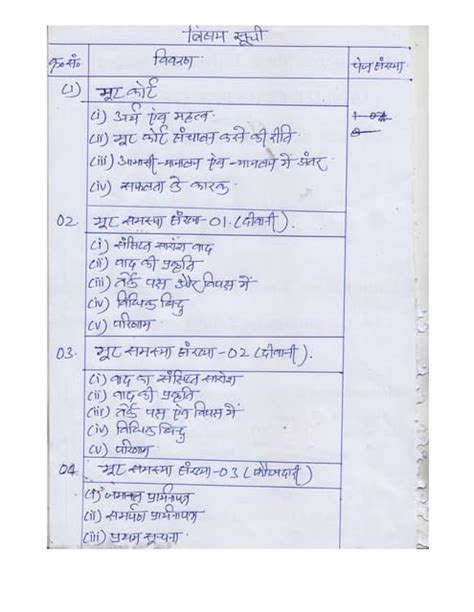 विषय सूची
क्र० सं० विवरण पेज संख्या
(1) मूट कोर्ट
(i) अर्थ एंव महत्व
(ii) मूट कोर्ट संचालन करने की रीति
(iii) आभासी-न्यायालय एंव न्यायालय में अंतर
(iv) सफलता के कारक
02. मूट समस्या संख्या-01.(दीवानी).
(i) संक्षिप्त सारांश वाद
(ii) वाद की प्रकृति
(iii) तर्क पक्ष और विपक्ष में
(iv) विधिक बिन्दु
(v) परिणाम
03. मूट समस्या संख्या-02 (दीवानी).
(i) वाद का संक्षिप्त सारांश
(ii) वाद की प्रकृति
(iii) तर्क पक्ष एंव विपक्ष में
(iv) विधिक बिन्दु
(v) परिणाम
04. मूट समस्या संख्या-03 (फौजदारी)
(i) जमानत प्रार्थनापत्र
(ii) समर्पण प्रार्थनापत्र
(iii) प्रथम सूचना